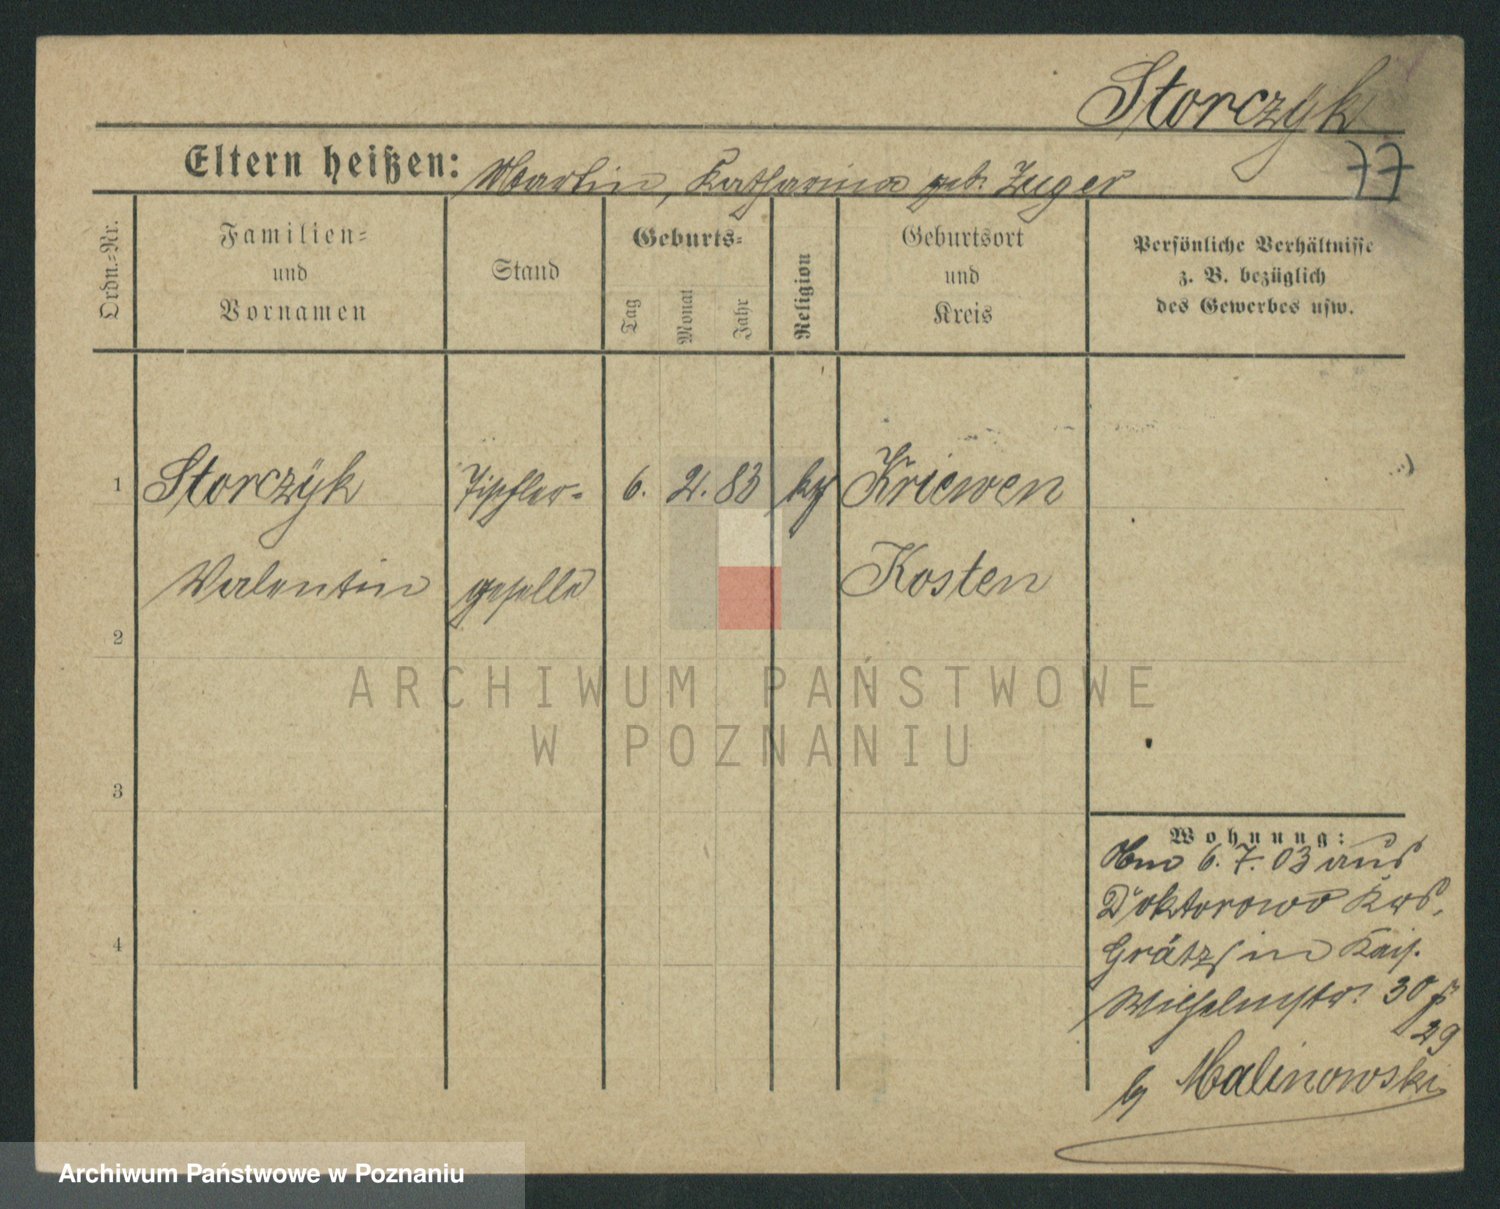 Storczyk
77
Eltern heißen: Martin, Katharina geb. Zuger
Ordn.=Nr.
Familien=
und
Vornamen
Stand
Geburts=
Tag
Monat
Jahr
Religion
Geburtsort
und
Kreis
Persönliche Verhältnisse
z. B. bezüglich
des Gewerbes usw.
1 Storczyk Tischler= 6. 2. 83 Kriewen
Valentin geselle Kosten
2
ARCHIWUM PAŃSTWOWE
W POZNANIU
3
Wohnung:
6. 7. 03 aus
Doktorowo Krs.
Grätz in Kais.
Wilhelmstr. 30
29
4
b/ Malinowski
Archiwum Państwowe w Poznaniu